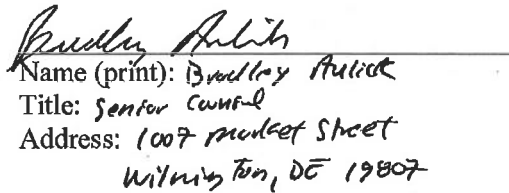 Bradley Aulick
Name (print): Bradley Aulick
Title: Senior Counsel
Address: 1007 Market Street
Wilmington, DE 19807